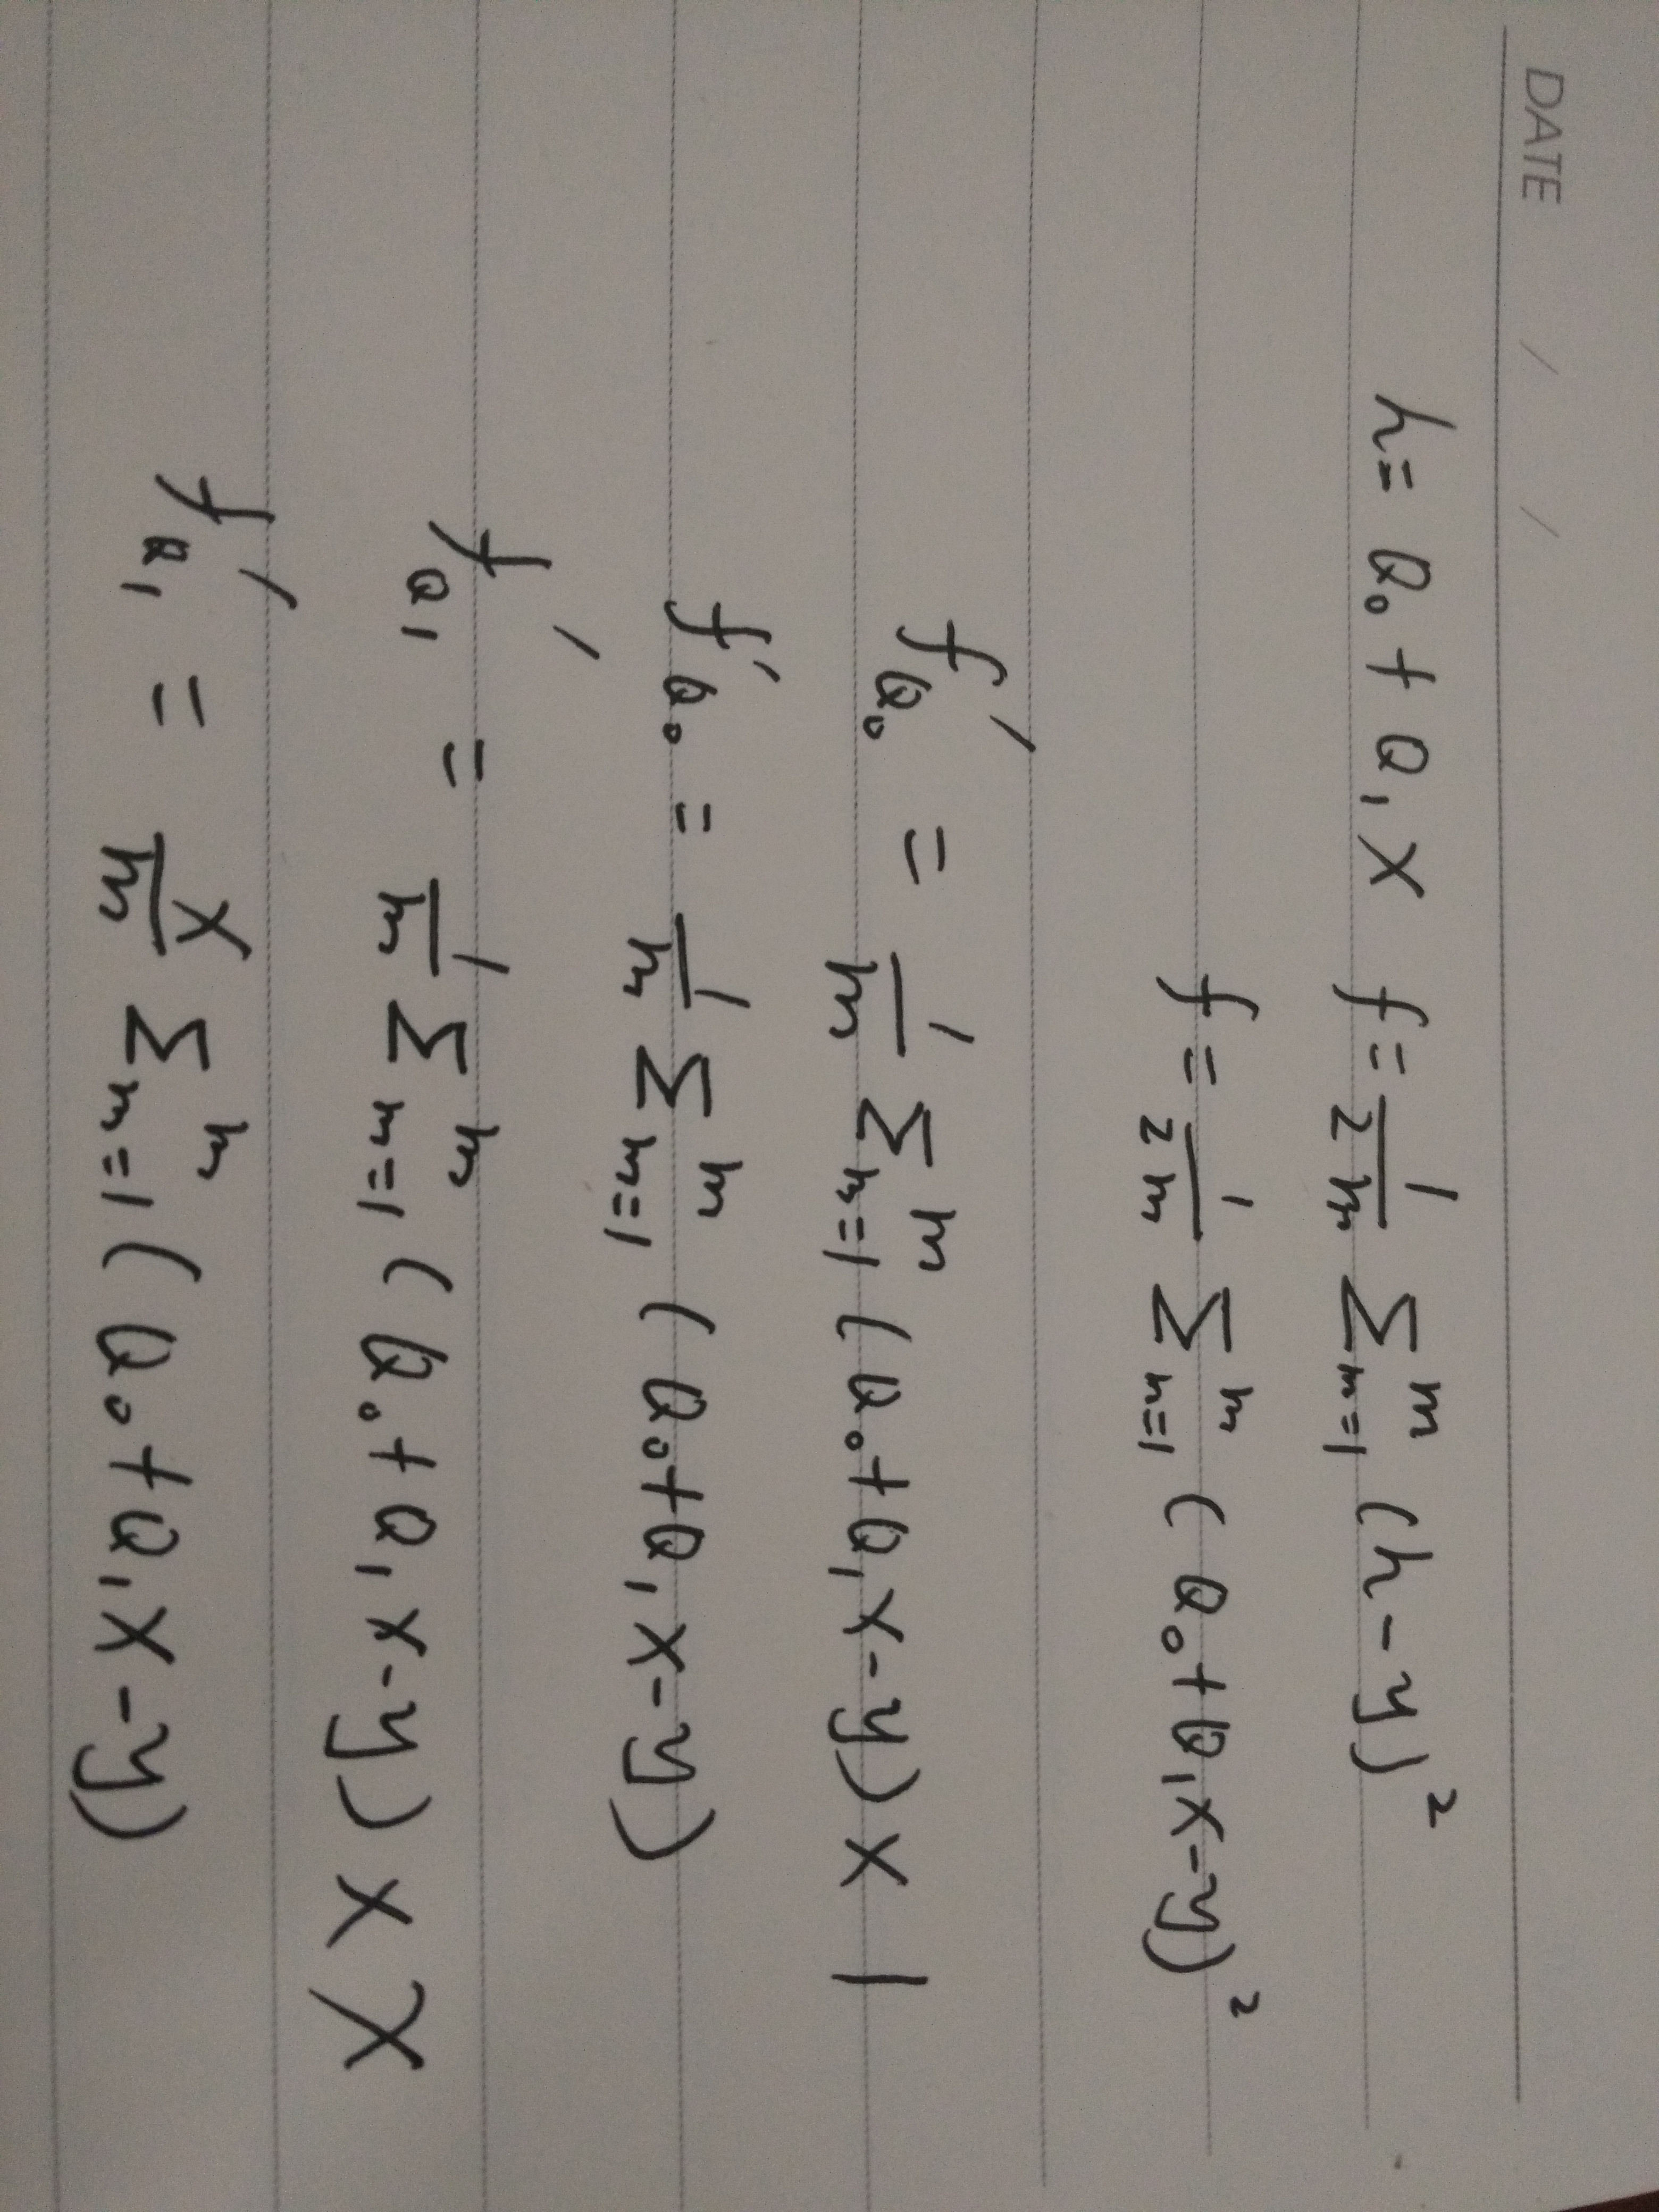 DATE / /
h = Q₀ + Q₁x f = 1/2m Σᵐₘ₌₁ (h - y)²
f = 1/2m Σᵐₘ₌₁ (Q₀ + Q₁x - y)²
f′Q₀ = 1/m Σᵐₘ₌₁ (Q₀ + Q₁x - y) × 1
f′Q₀ = 1/m Σᵐₘ₌₁ (Q₀ + Q₁x - y)
f′Q₁ = 1/m Σᵐₘ₌₁ (Q₀ + Q₁x - y) × x
f′Q₁ = x/m Σᵐₘ₌₁ (Q₀ + Q₁x - y)